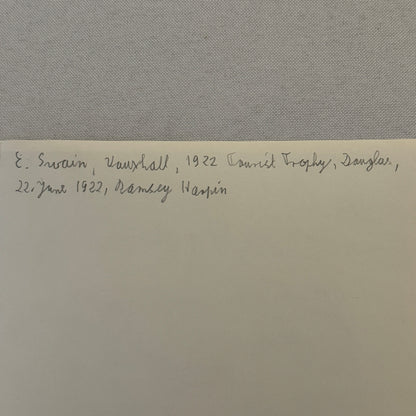 E. Swain, Vauxhall, 1922 Tourist Trophy, Douglas,
22. June 1922, Ramsey Hairpin